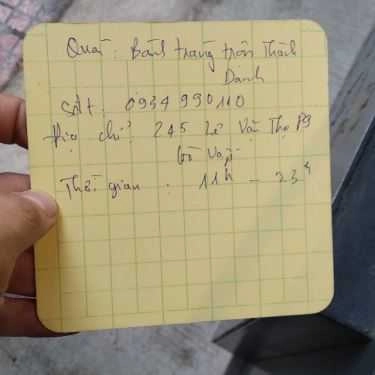 Quán : Bánh tráng trộn Thành
Danh
Sđt : 0934 990 110
Địa chỉ : 245 Lê Văn Thọ P9
Gò Vấp
Thời gian : 11h - 23h